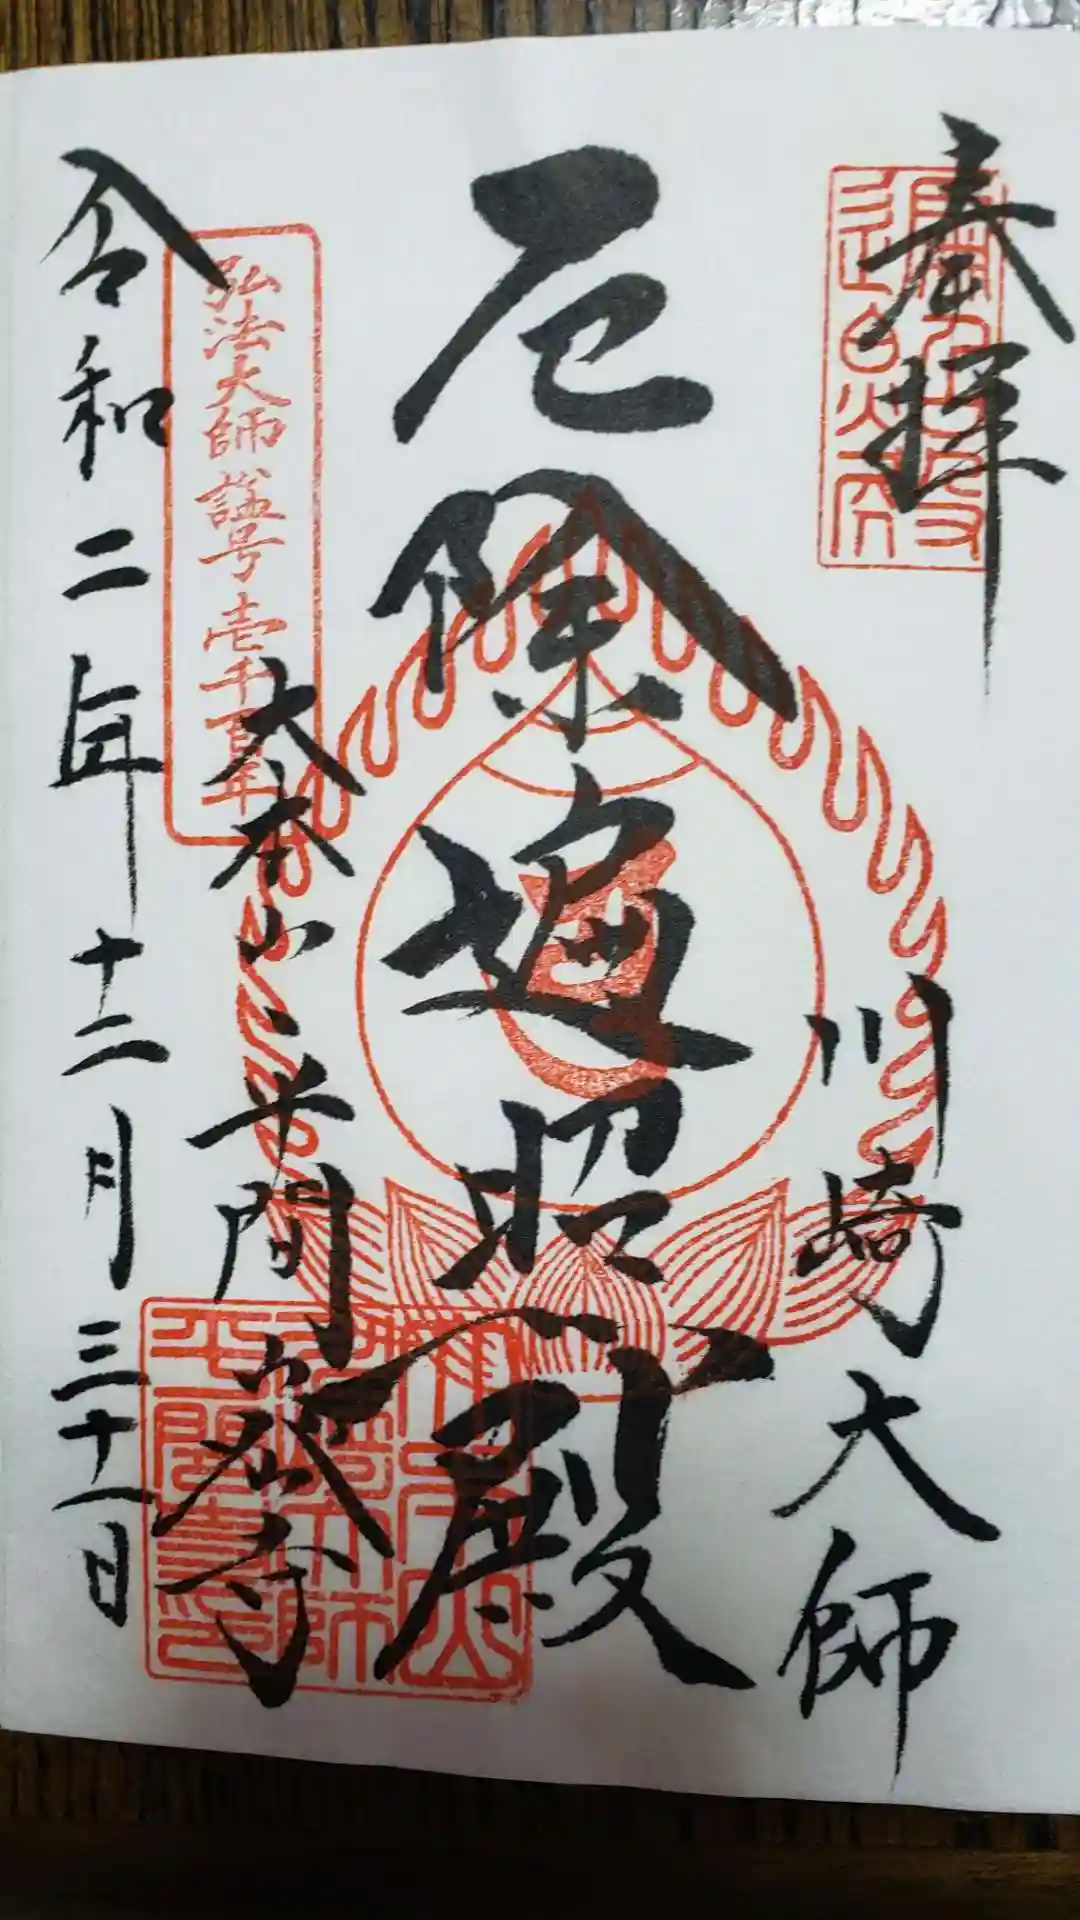 奉拝
川崎大師
厄除遍照殿
弘法大師諡号壱千百年
大本山平間寺
令和二年十二月三十一日